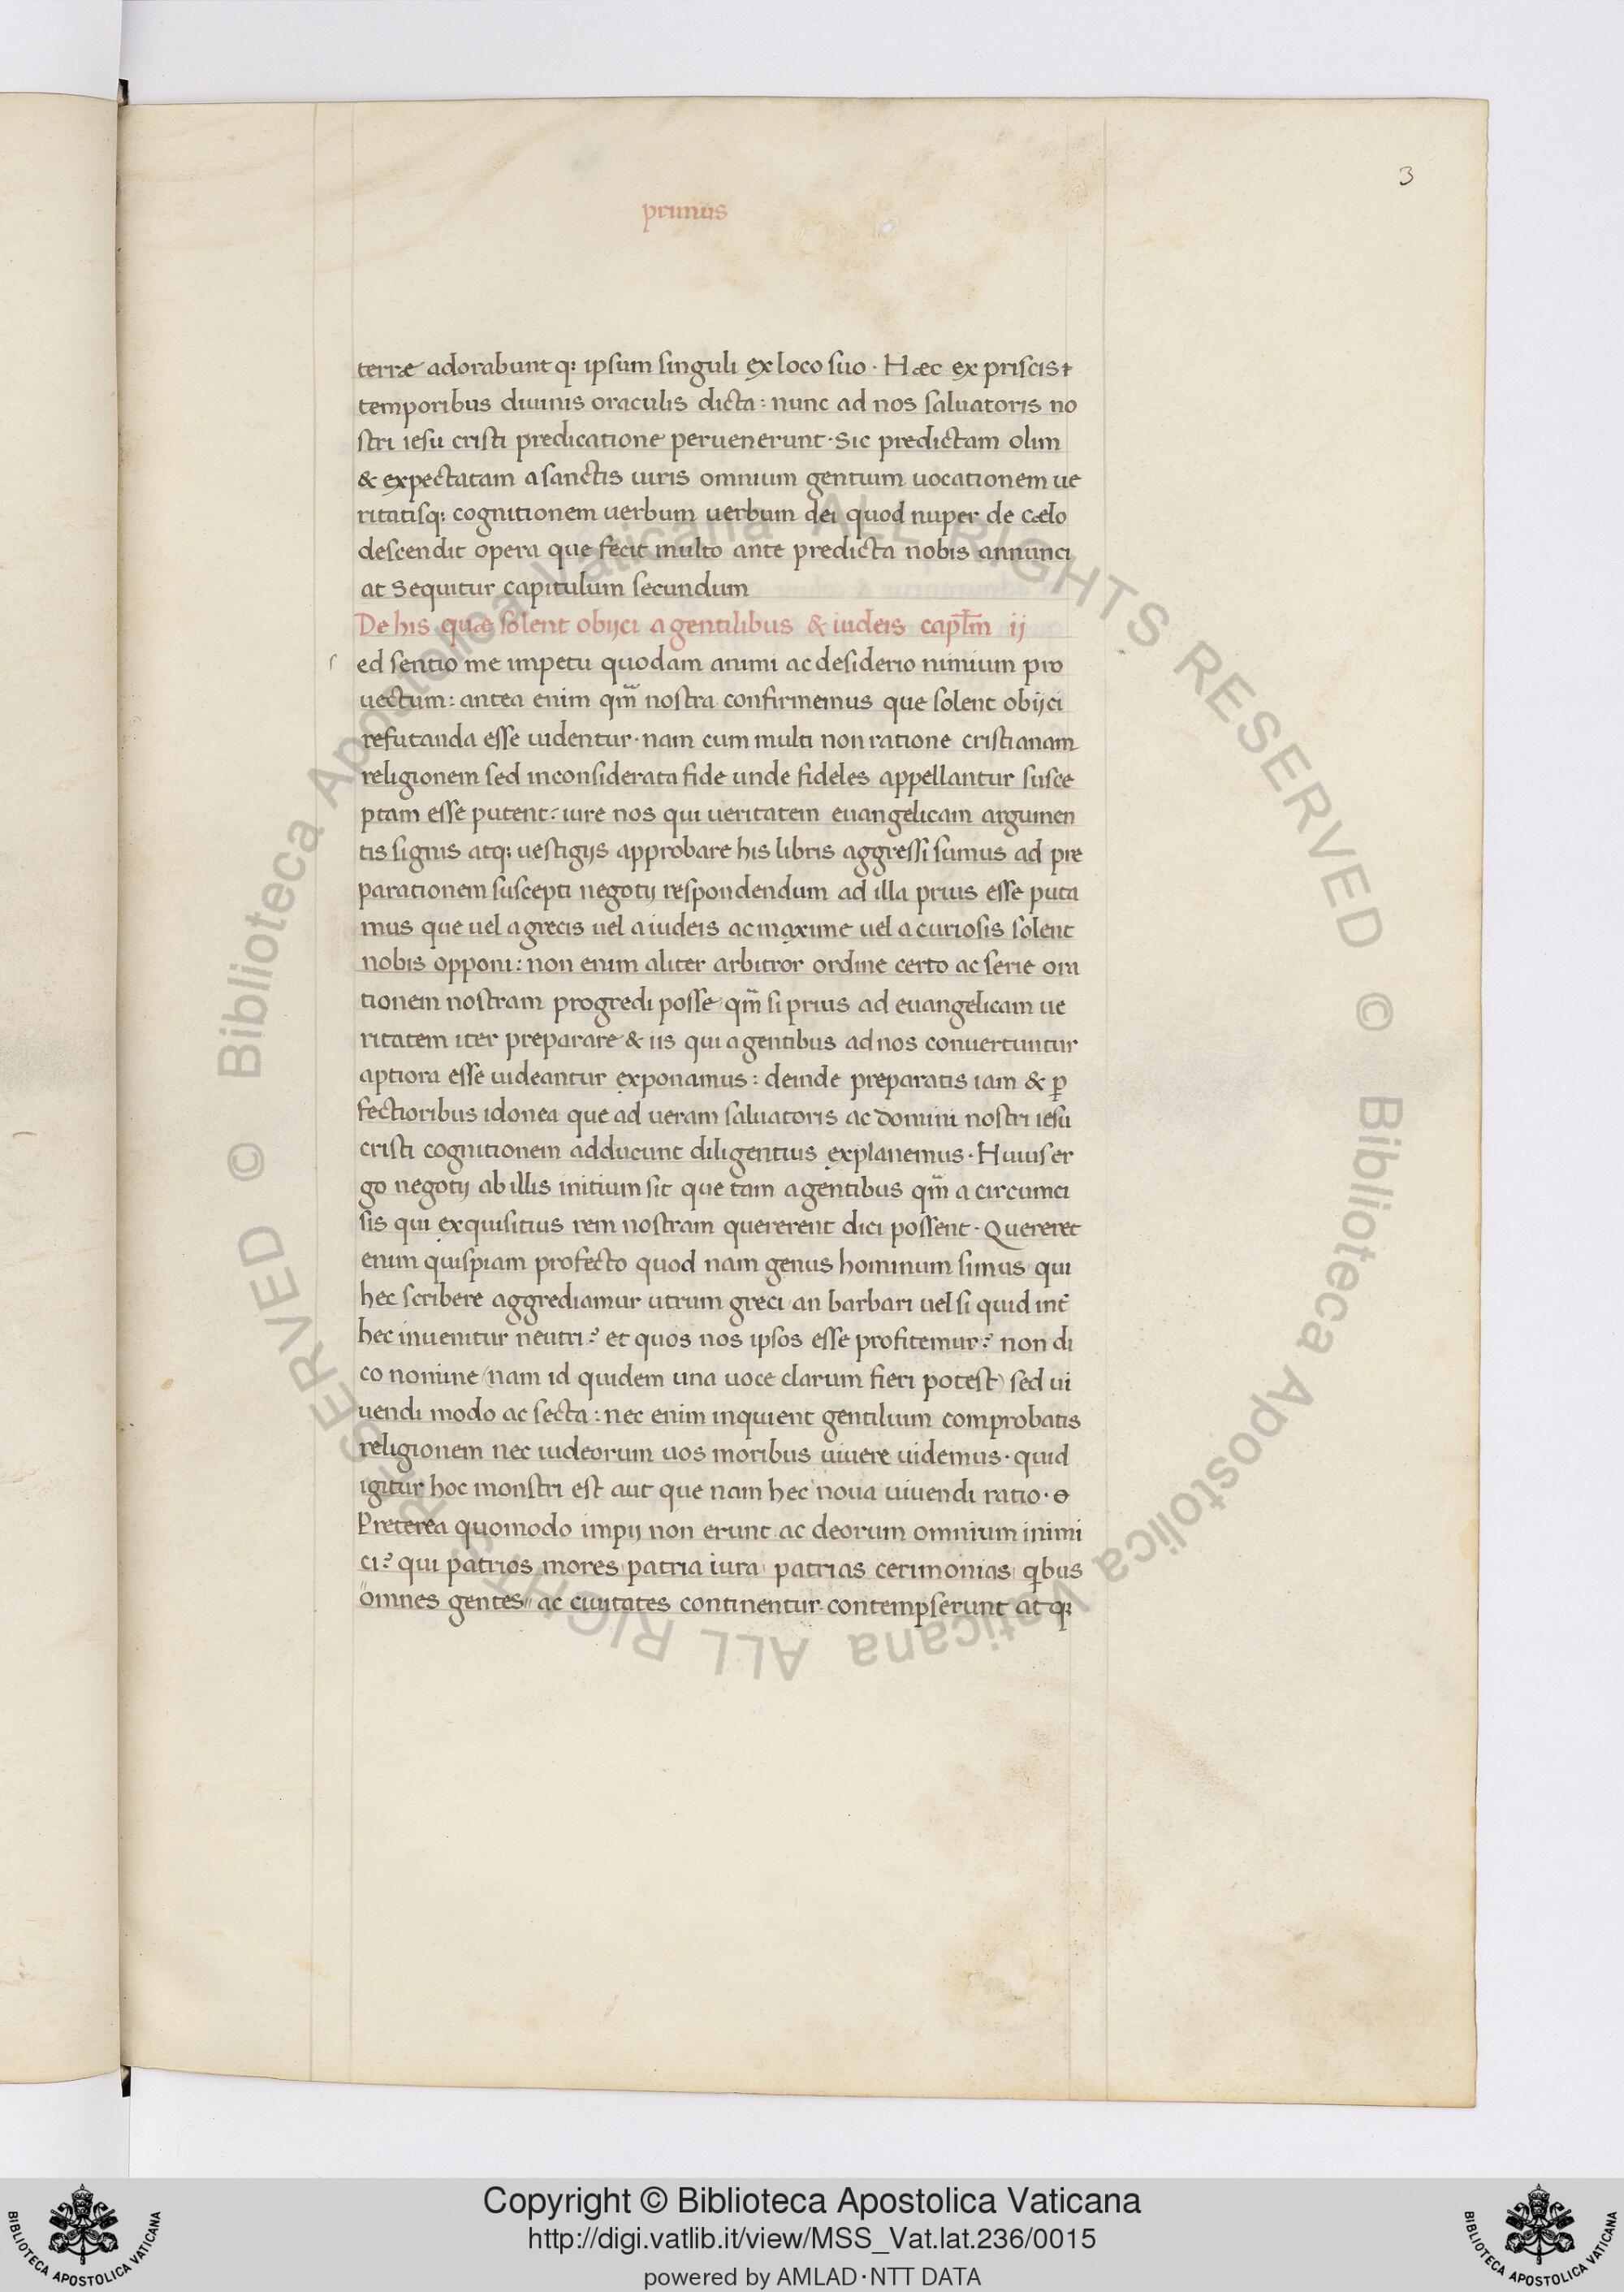 3
primus
terræ adorabunt q; ipsum singuli ex loco suo · Hæc ex priscis
temporibus diuinis oraculis dicta : nunc ad nos saluatoris no
stri iesu cristi predicatione peruenerunt · Sic predictam olim
& expectatam a sanctis uiris omnium gentium uocationem ue
ritatisq; cognitionem uerbum uerbum dei quod nuper de cælo
descendit opera que fecit multo ante predicta nobis annunci
at Sequitur capitulum secundum
De his quæ solent obijci a gentilibus & iudeis capl̅m ij
s ed sentio me impetu quodam animi ac desiderio nimium pro
uectum : antea enim qm̅ nostra confirmemus que solent obijci
refutanda esse uidentur · nam cum multi non ratione cristianam
religionem sed inconsiderata fide unde fideles appellantur susce
ptam esse putent : iure nos qui ueritatem euangelicam argumen
tis signis atq; uestigijs approbare his libris aggressi sumus ad pre
parationem suscepti negotij respondendum ad illa prius esse puta
mus que uel a grecis uel a iudeis ac maxime uel a curiosis solent
nobis opponi : non enim aliter arbitror ordine certo ac serie ora
tionem nostram progredi posse qm̅ si prius ad euangelicam ue
ritatem iter preparare & iis qui a gentibus ad nos conuertuntur
aptiora esse uideantur exponamus : deinde preparatis iam & ꝑ
fectioribus idonea que ad ueram saluatoris ac domini nostri iesu
cristi cognitionem adducunt diligentius explanemus · Huius er
go negotij ab illis initium sit que tam a gentibus qm̅ a circumci
sis qui exquisitius rem nostram quererent dici possent · Quereret
enim quispiam profecto quod nam genus hominum simus qui
hec scribere aggrediamur utrum greci an barbari uel si quid int̅
hec inuenitur neutri ? et quos nos ipsos esse profitemur ? non di
co nomine (nam id quidem una uoce clarum fieri potest) sed ui
uendi modo ac secta : nec enim inquient gentilium comprobatis
religionem nec iudeorum uos moribus uiuere uidemus · quid
igitur hoc monstri est aut que nam hec noua uiuendi ratio ·
Preterea quomodo impij non erunt ac deorum omnium inimi
ci ? qui patrios mores patria iura patrias cerimonias qbus
"omnes gentes" ac ciuitates continentur contempserunt atq;
© Biblioteca Apostolica Vaticana ALL RIGHTS RESERVED © Biblioteca Apostolica Vaticana ALL RIGHTS RESERVED
Copyright © Biblioteca Apostolica Vaticana
http://digi.vatlib.it/view/MSS_Vat.lat.236/0015
powered by AMLAD·NTT DATA
BIBLIOTECA APOSTOLICA VATICANA
BIBLIOTECA APOSTOLICA VATICANA